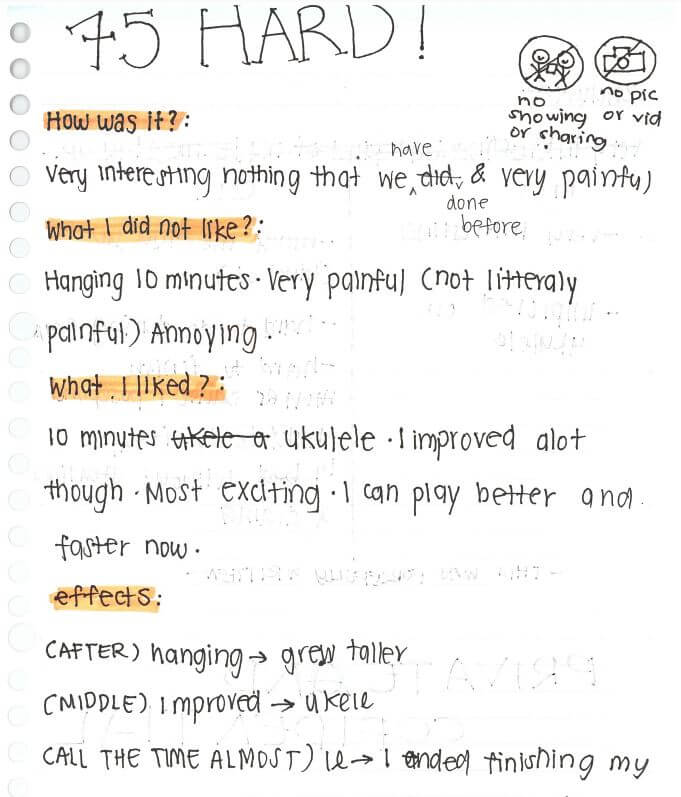 75 HARD!
no showing or sharing
no pic or vid
How was it?:
Very interesting nothing that we have did done before, & very painful
What I did not like?:
Hanging 10 minutes. Very painful (not litteraly
painful) Annoying.
What I liked?:
10 minutes ukele a ukulele. I improved alot
though. Most exciting. I can play better and
faster now.
effects:
(AFTER) hanging → grew taller
(MIDDLE) improved → ukele
(ALL THE TIME ALMOST) → I ended finishing my